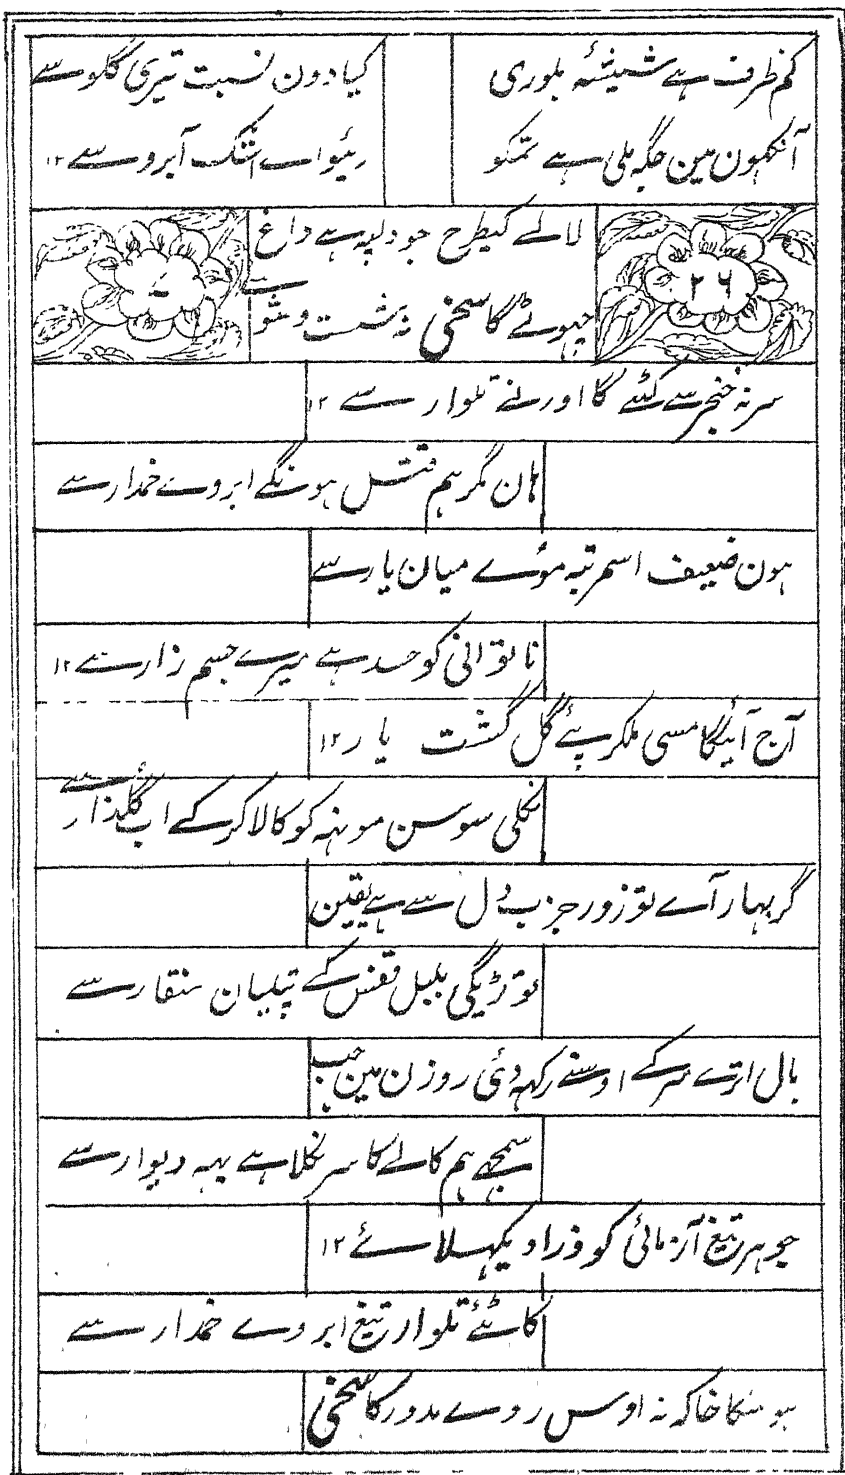 کم ظرف ہے شیشئہ بلوری
کیا دون نسبت تیری گلو سے
آنکھون مین جگہ ملی ہے تمکو
اشک آبرو سے ۱۲
لالے کیطرح جو دلپہ ہے داغ
چہوٹے گا سخی نہ شست و شو سے
۲۶
۷
سر نہ خنجر سے کٹے گا اور نے تلوار سے ۱۲
ہان مگر ہم قتل ہونگے ابروے خمدار سے
ہون ضعیف اسمرتبہ موے میان یار سے
ناتوانی کو حسد ہے میرے جسم زار سے ۱۲
آج آئیگا مسی ملکر پئے گل گشت یار ۱۲
نکلی سوسن مونہہ کو کالا کر کے اب گلذار سے
گر بہار آے تو زور جزب دل سے ہے یقین
توڑیگی بلبل قفس کے تیلیان منقار سے
بال اترے سر کے اوسنے رکہہ دئی روزن مین جب
سمجھے ہم کالے کا سر نکلا ہے یہہ دیوار سے
جوہر تیغ آزمائی کو ذرا دیکہلائے ۱۲
کاٹئے تلوار تیغ ابروے خمدار سے
ہو سکا خاکہ نہ اوس روے مدور کا سخی